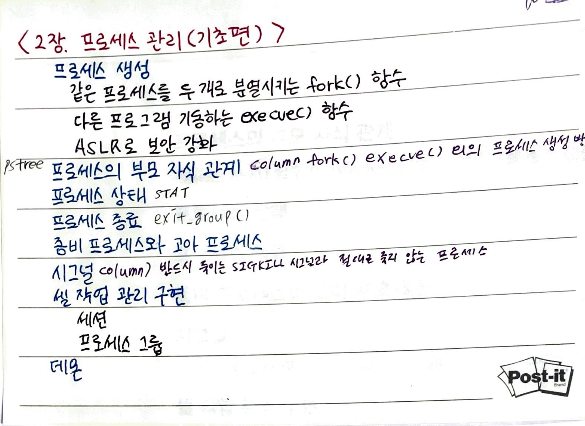 <2장. 프로세스 관리(기초편)>
프로세스 생성
같은 프로세스를 두 개로 분열시키는 fork() 함수
다른 프로그램 기동하는 execve() 함수
ASLR로 보안 강화
pstree 프로세스의 부모 자식 관계 column fork() execve() 이외의 프로세스 생성 방
프로세스 상태 STAT
프로세스 종료 exit_group()
좀비 프로세스와 고아 프로세스
시그널 column) 반드시 죽이는 SIGKILL 시그널과 절대로 죽지 않는 프로세스
셸 작업 관리 구현
세션
프로세스 그룹
데몬
Post-it